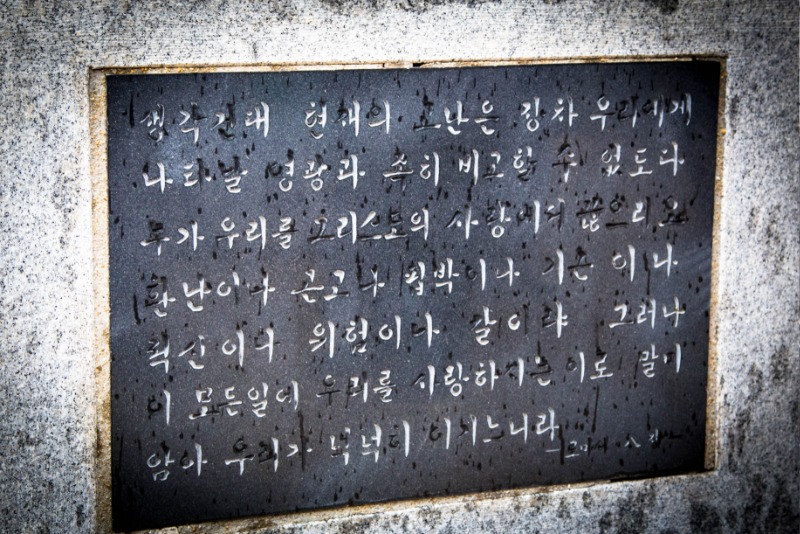 생각건대 현재의 고난은 장차 우리에게
나타날 영광과 족히 비교할 수 없도다
누가 우리를 그리스도의 사랑에서 끊으리요
환난이나 곤고나 핍박이나 기근 이나
적신이나 위험이나 칼이랴 그러나
이 모든일에 우리를 사랑하시는 이로 말미
암아 우리가 넉넉히 이기느니라